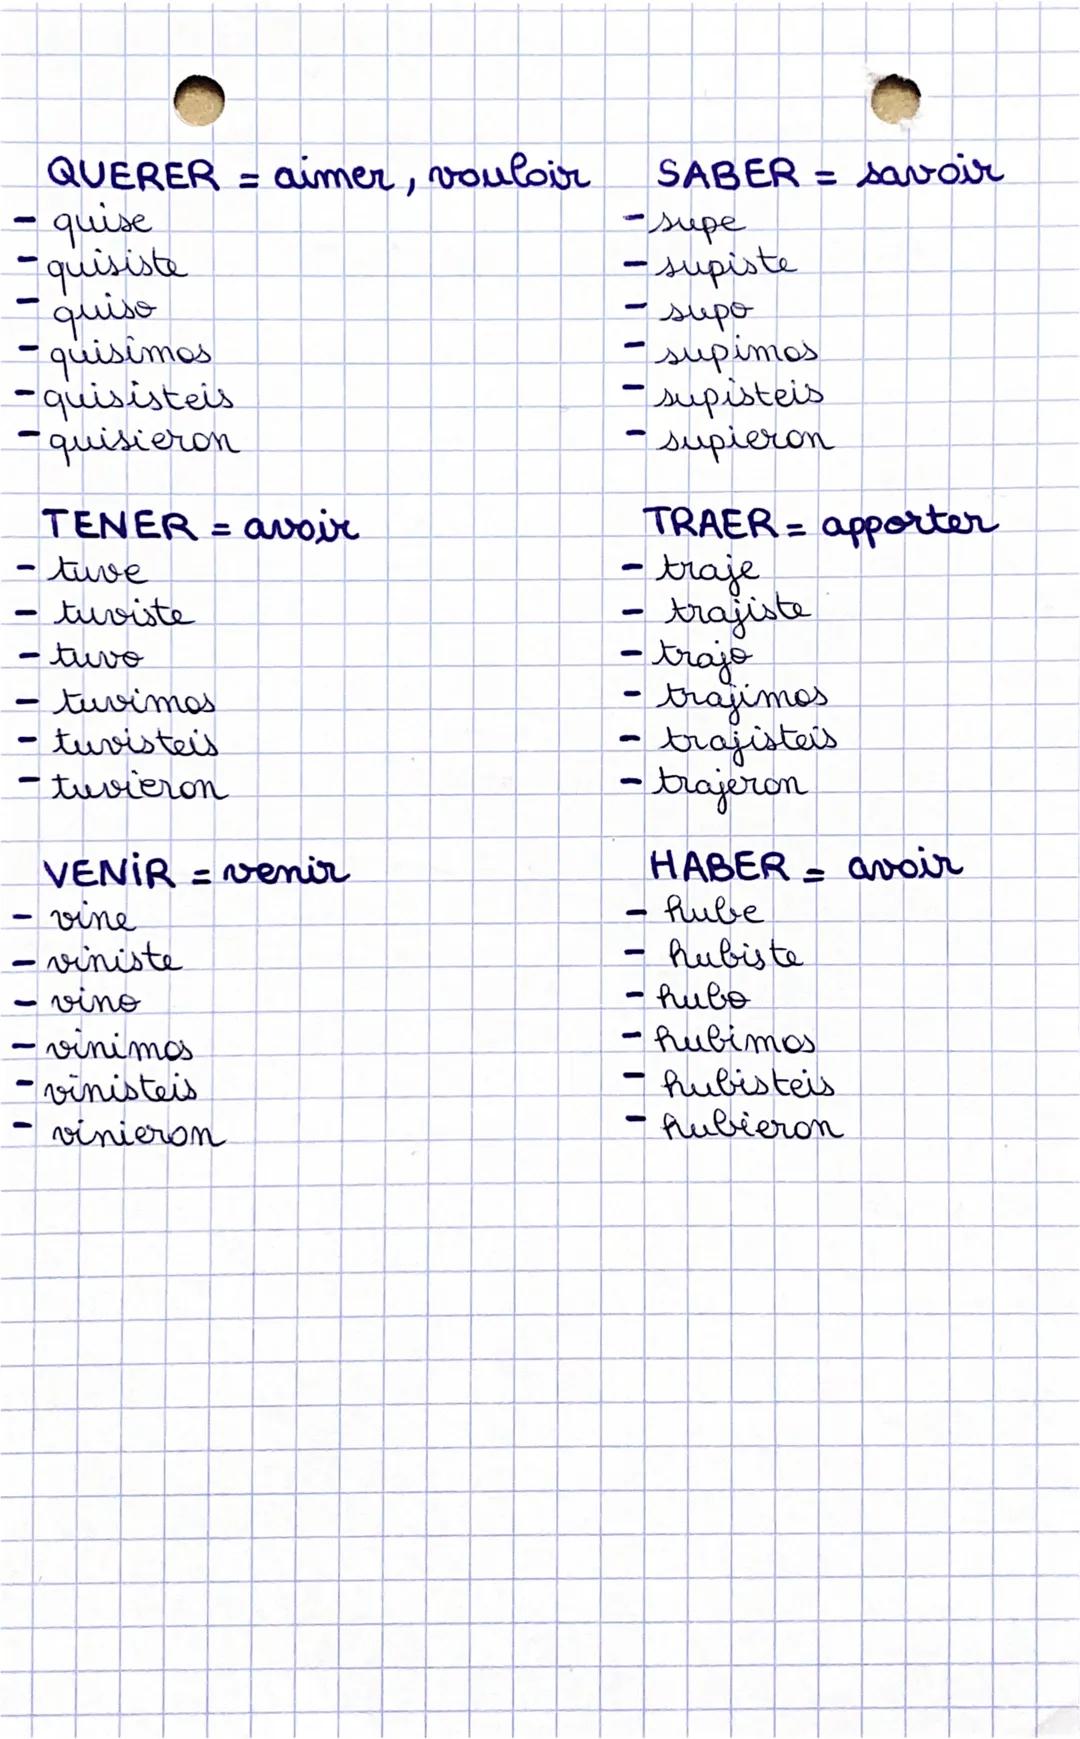 QUERER = aimer, vouloir
- quise
- quisiste
- quiso
- quisimos
- quisisteis
- quisieron
SABER = savoir
- supe
- supiste
- supo
- supimos
- supisteis
- supieron
TENER = avoir
- tuve
- tuviste
- tuvo
- tuvimos
- tuvisteis
- tuvieron
TRAER = apporter
- traje
- trajiste
- trajo
- trajimos
- trajisteis
- trajeron
VENIR = venir
- vine
- viniste
- vino
- vinimos
- vinisteis
- vinieron
HABER = avoir
- hube
- hubiste
- hubo
- hubimos
- hubisteis
- hubieron